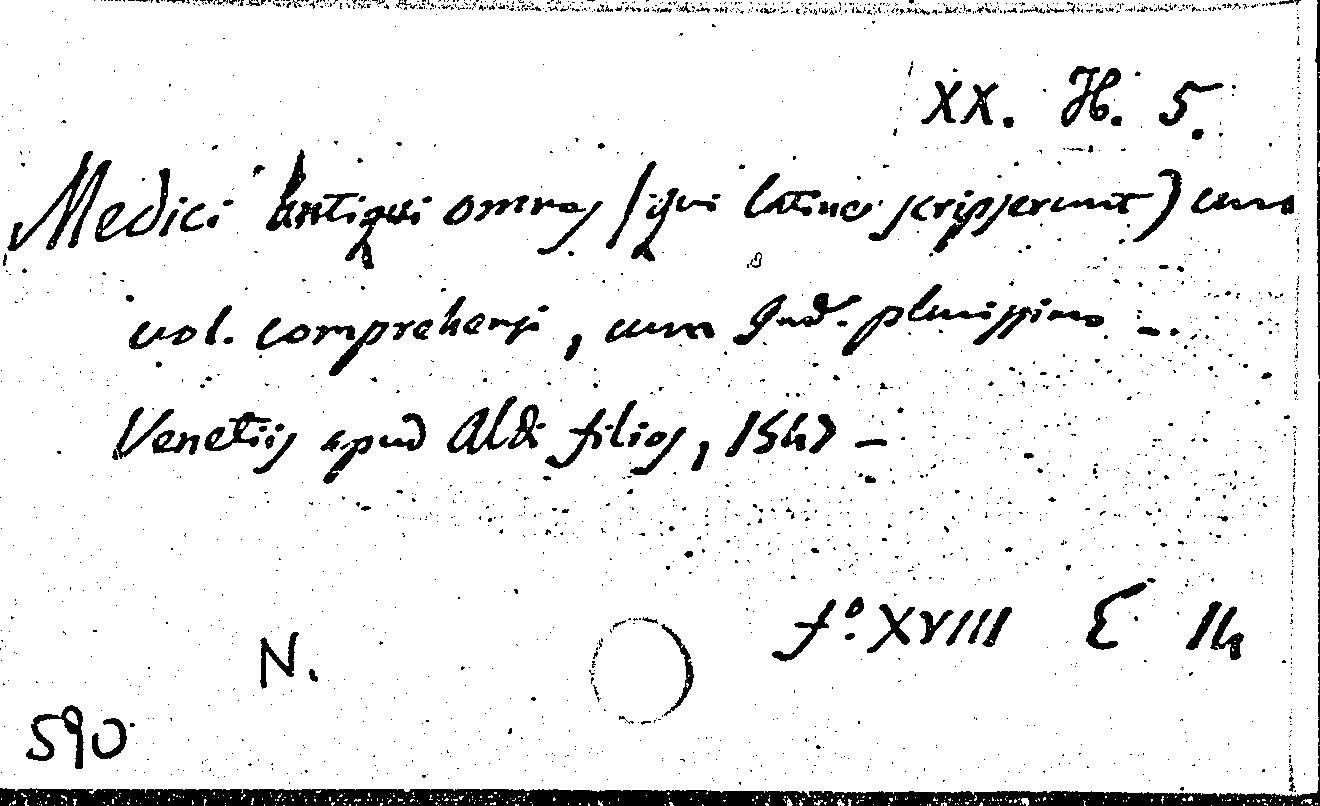 XX. H. 5.
Medici antiqui omnes (qui latine scripserunt) uno
vol. comprehensi, cum Ind. plenissimo -.
Venetiis apud Aldi filios, 1547 -
f.º XVIII E 14
N.
590